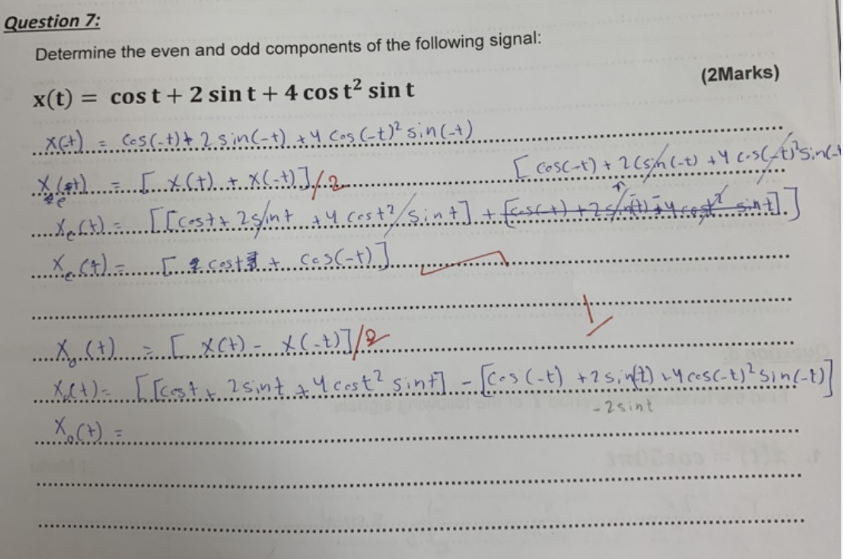 Question 7:
Determine the even and odd components of the following signal:
(2Marks)
x(t) = cos t + 2 sin t + 4 cos t² sin t
x(-t) = cos(-t) + 2 sin(-t) + 4 cos(-t)² sin(-t)
[cos(-t) + 2(sin(-t) + 4 cos(-t)² sin(-t
Xe(t) = [x(t) + x(-t)]/2
Xe(t) = [[cost + 2sint + 4 cost² sint] + ]
Xe(t) = [ cost + cos(-t)]
1
Xo(t) = [x(t) - x(-t)]/2
Xo(t) = [[cost + 2sint + 4 cost² sint] - [cos(-t) + 2 sin(t) + 4cos(-t)² sin(-t)]
-2sint
Xo(t) =